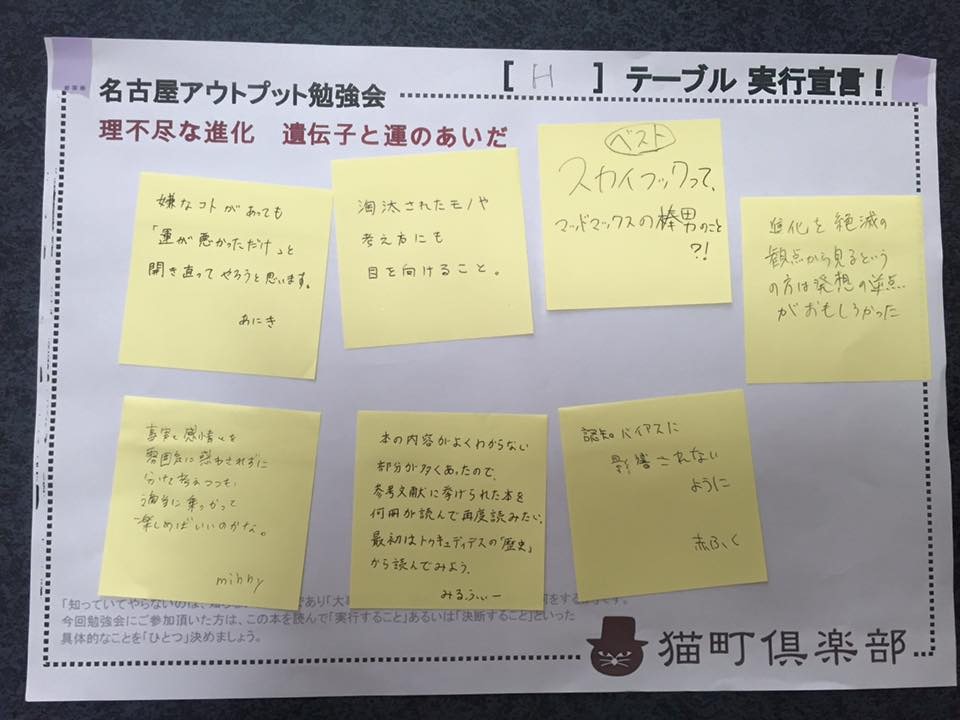 名古屋アウトプット勉強会
[ H ] テーブル 実行宣言!
理不尽な進化 遺伝子と運のあいだ
嫌なコトがあっても
「運が悪かっただけ」と
開き直ってやろうと思います。
あにき
淘汰されたモノや
考え方にも
目を向けること。
ベスト
スカイフックって、
マッドマックスの棒男のこと
?!
進化を絶滅の
観点から見るという
の方は発想の逆点
がおもしろかった
事実と感情を
雰囲気に惑わされずに
分けて考えつつも、
適当に乗っかって
楽しめばいいのかな。
minny
本の内容がよくわからない
部分が多くあったので、
参考文献に挙げられた本を
何冊か読んで再度読みたい。
最初はトゥキュディデスの「歴史」
から読んでみよう。
みるふぃー
認知バイアスに
影響されない
ように
赤ふく
「知っていてやらないのは、
であり「大
今回勉強会にご参加頂いた方は、この本を読んで「実行すること」あるいは「決断すること」といった
具体的なことを「ひとつ」決めましょう。
猫町倶楽部